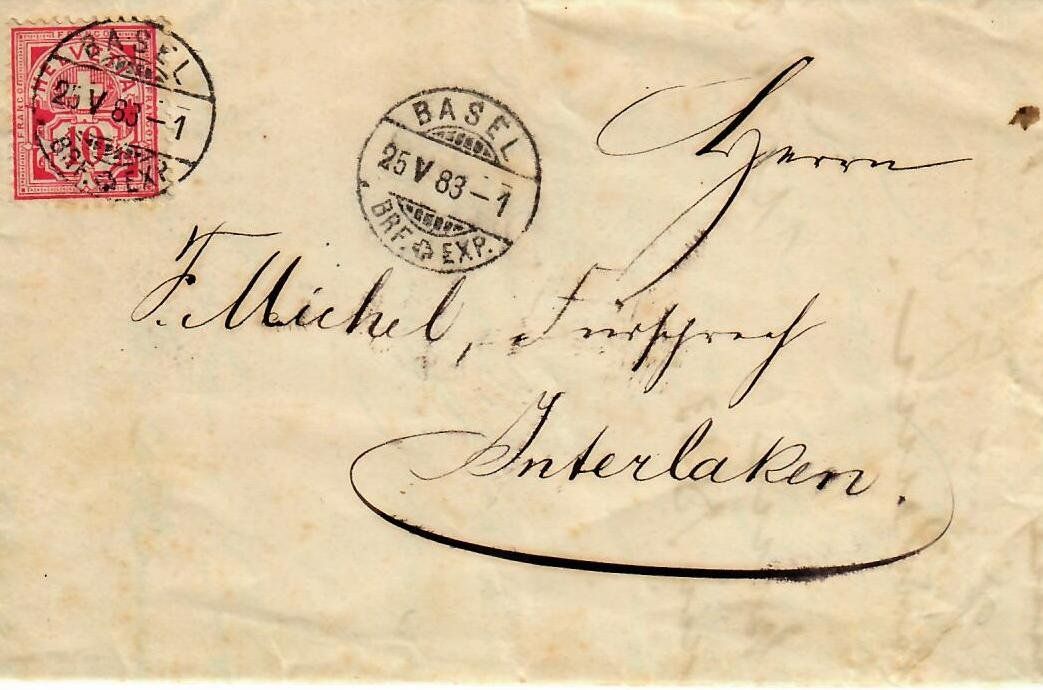 FRANCO
HELVETIA
FRANCO
10
BASEL
25 V 83 – 1
BRF. EXP.
BASEL
25 V 83 – 1
BRF. EXP.
Herrn
F. Michel, Fürsprech
Interlaken.